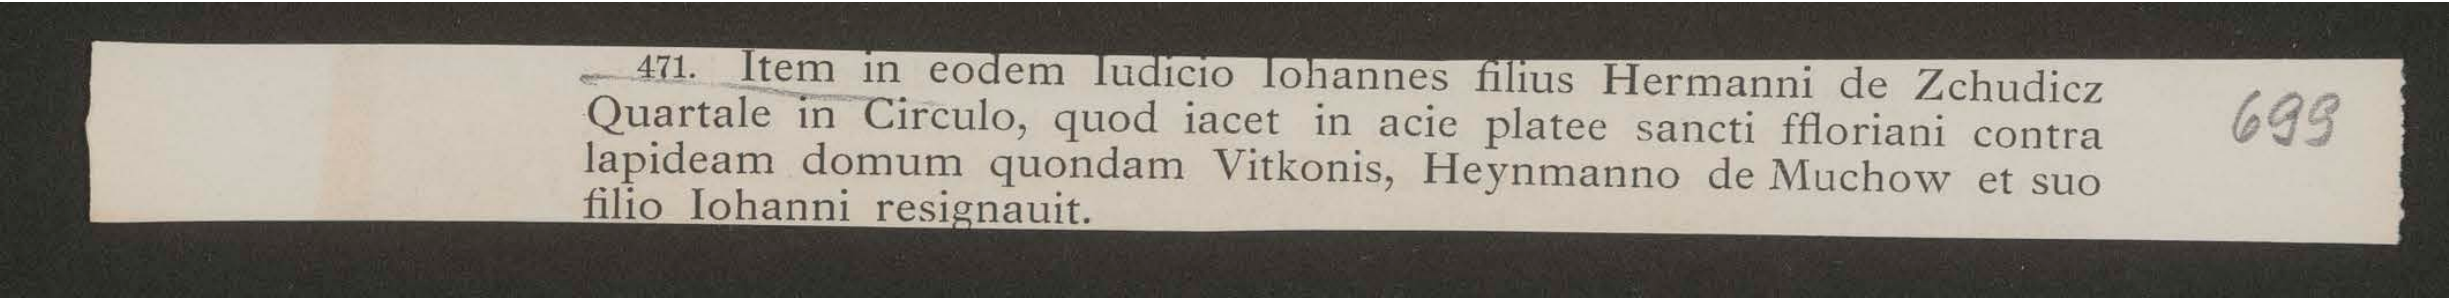 471. Item in eodem Iudicio Iohannes filius Hermanni de Zchudicz
Quartale in Circulo, quod iacet in acie platee sancti ffloriani contra
lapideam domum quondam Vitkonis, Heynmanno de Muchow et suo
filio Iohanni resignauit.
699